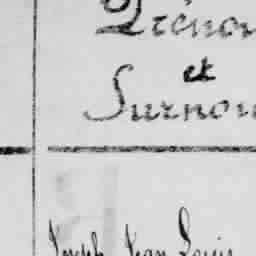 Prénom
et
Surnom
Joseph Jean Louis